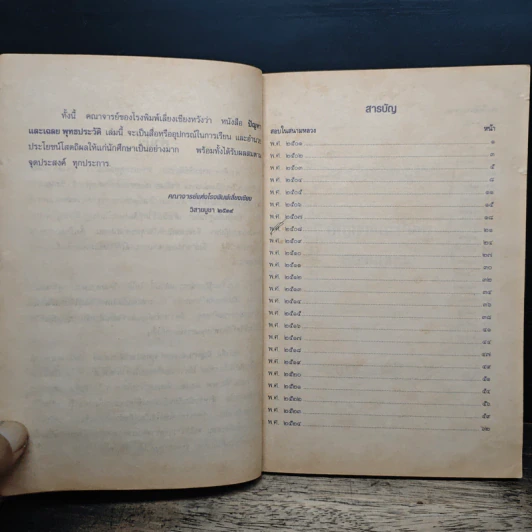 ทั้งนี้ คณาจารย์ของโรงพิมพ์เลี่ยงเชียงหวังว่า หนังสือ ปัญหา
และเฉลย พุทธประวัติ เล่มนี้ จะเป็นสื่อหรืออุปกรณ์ในการเรียน และอำนวย
ประโยชน์โสตถิผลให้แก่นักศึกษาเป็นอย่างมาก พร้อมทั้งได้รับผลสมตาม
จุดประสงค์ ทุกประการ
คณาจารย์แห่งโรงพิมพ์เลี่ยงเชียง
วิสาขบูชา
สารบัญ
สอบในสนามหลวง หน้า
พ.ศ. ๒๕๐๑ ๑
พ.ศ. ๒๕๐๒ ๓
พ.ศ. ๒๕๐๓ ๕
พ.ศ. ๒๕๐๔ ๘
พ.ศ. ๒๕๐๕ ๑๑
พ.ศ. ๒๕๐๖ ๑๕
พ.ศ. ๒๕๐๗ ๑๘
พ.ศ. ๒๕๐๘ ๒๑
พ.ศ. ๒๕๐๙ ๒๔
พ.ศ. ๒๕๑๐ ๒๗
พ.ศ. ๒๕๑๑ ๓๐
พ.ศ. ๒๕๑๒ ๓๒
พ.ศ. ๒๕๑๓ ๓๔
พ.ศ. ๒๕๑๔ ๓๖
พ.ศ. ๒๕๑๕ ๓๘
พ.ศ. ๒๕๑๖ ๔๑
พ.ศ. ๒๕๑๗ ๔๔
พ.ศ. ๒๕๑๘ ๔๗
พ.ศ. ๒๕๑๙ ๔๙
พ.ศ. ๒๕๒๐ ๕๑
พ.ศ. ๒๕๒๑ ๕๔
พ.ศ. ๒๕๒๒ ๕๖
พ.ศ. ๒๕๒๓ ๕๙
พ.ศ. ๒๕๒๔ ๖๒